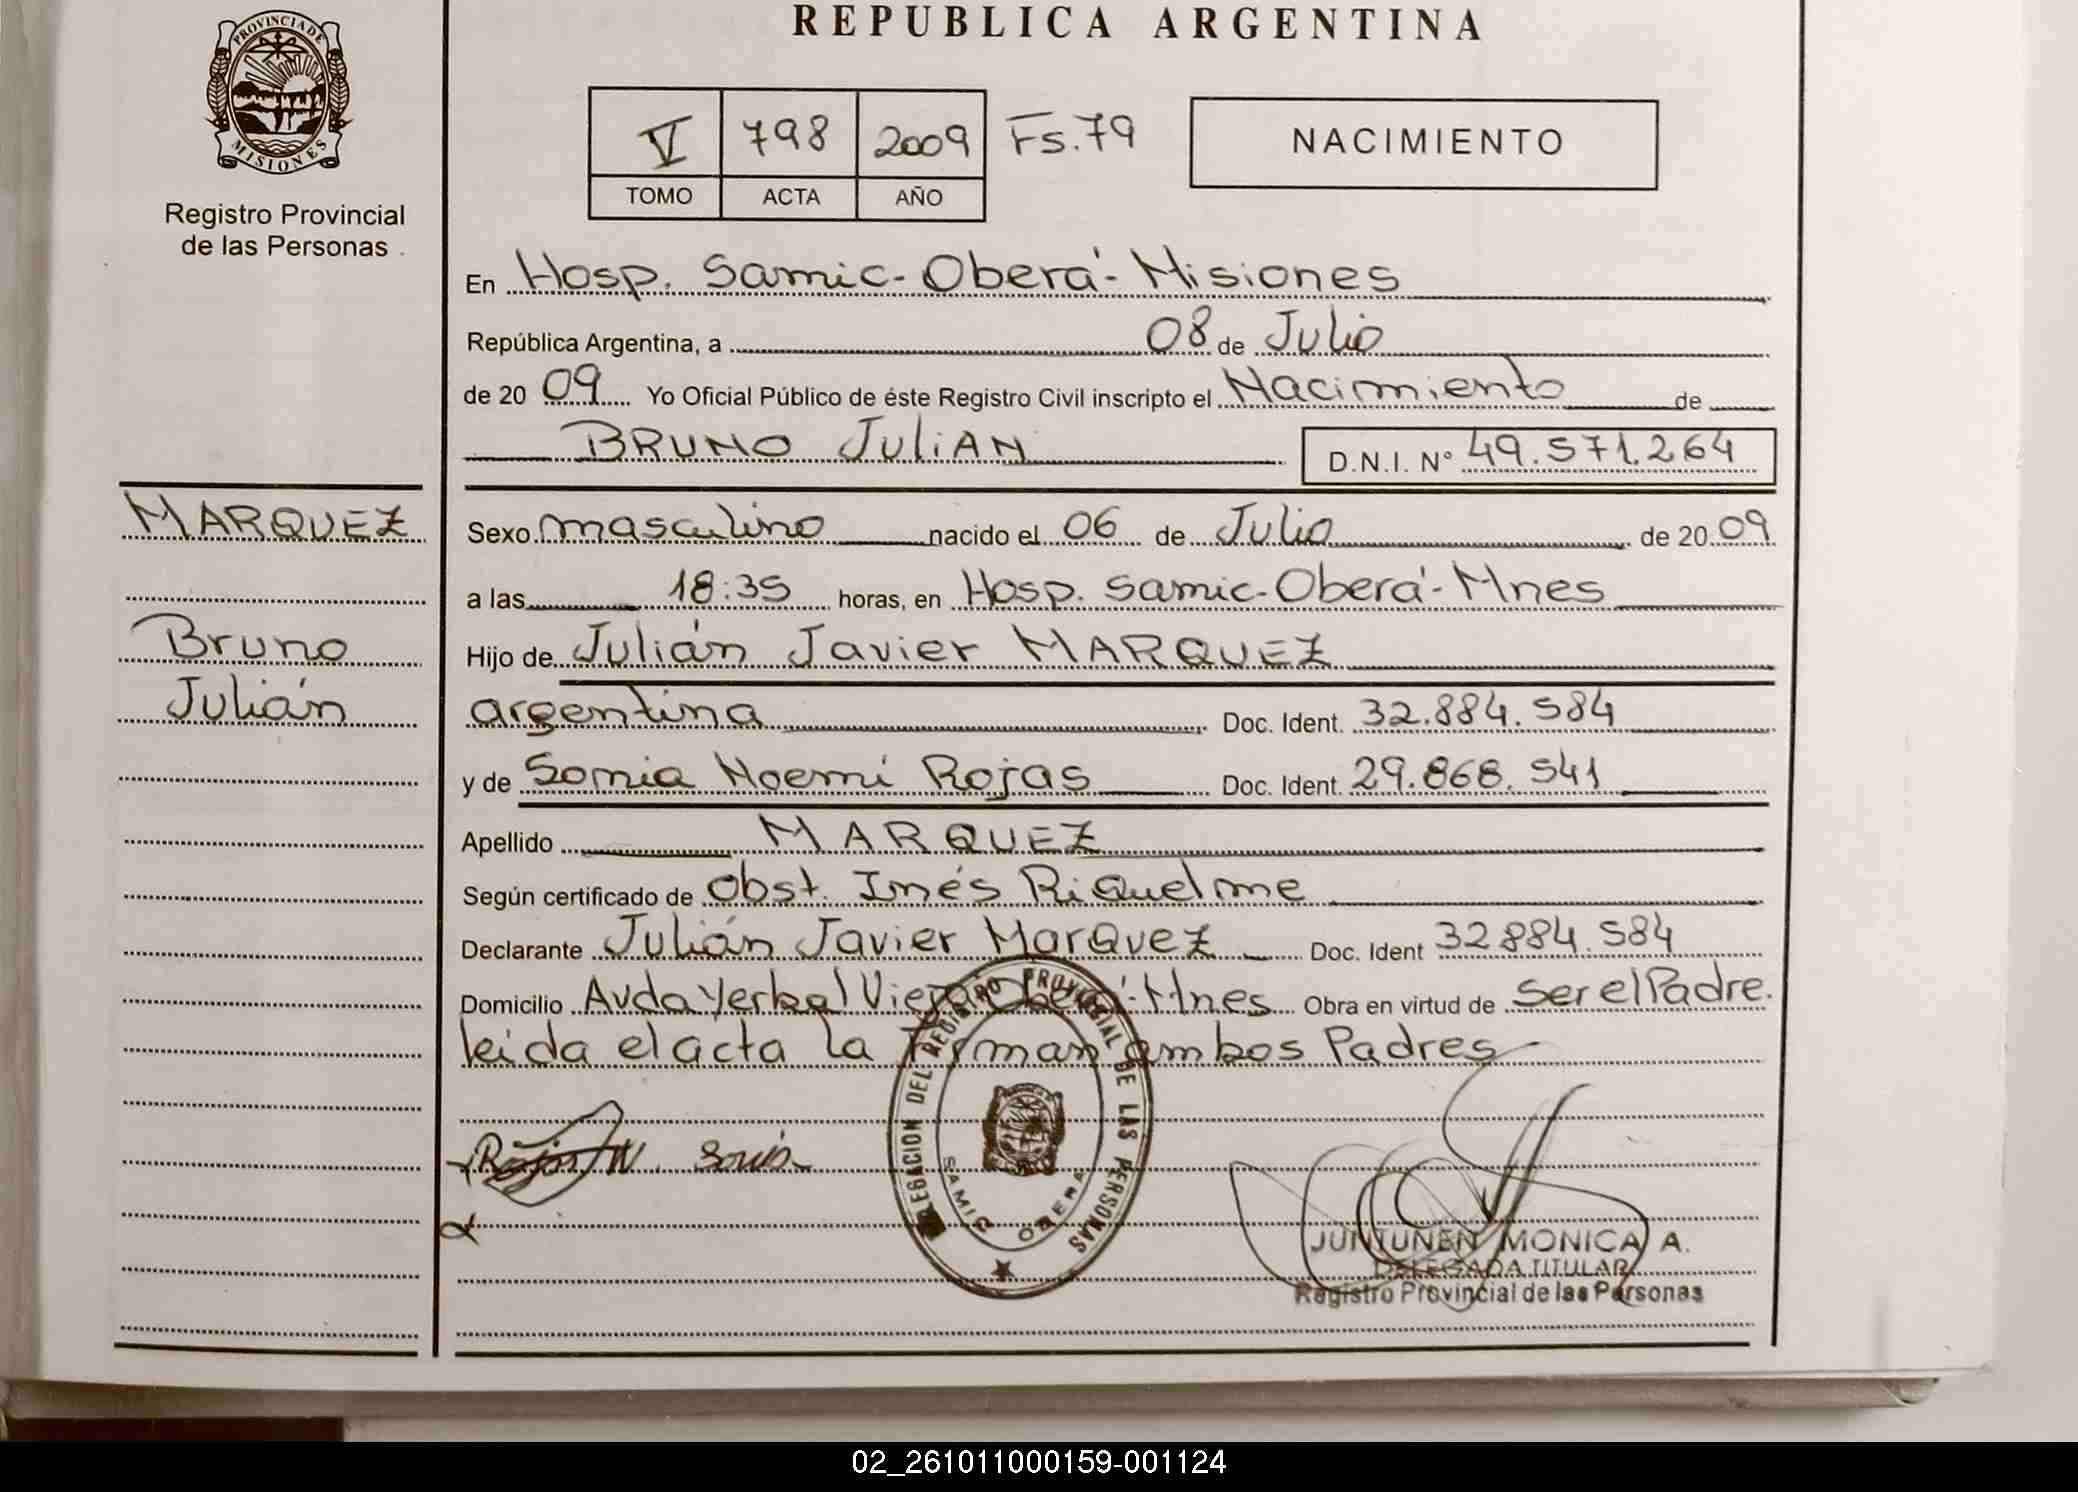 REPUBLICA ARGENTINA
PROVINCIA DE MISIONES
Registro Provincial
de las Personas
V 798 2009 Fs.79
TOMO ACTA AÑO
NACIMIENTO
En Hosp. Samic-Oberá-Misiones
República Argentina, a 08 de Julio
de 20 09 Yo Oficial Público de éste Registro Civil inscripto el Nacimiento de
BRUNO JULIAN D.N.I. Nº 49.571.264
MARQUEZ
Bruno
Julián
Sexo masculino nacido el 06 de Julio de 20 09
a las 18:35 horas, en Hosp. Samic-Oberá-Mnes
Hijo de Julián Javier MARQUEZ
argentina Doc. Ident. 32.884.584
y de Sonia Noemí Rojas Doc. Ident. 29.868.541
Apellido MARQUEZ
Según certificado de Obst. Inés Riquelme
Declarante Julián Javier Marquez Doc. Ident 32884.584
Domicilio Avda Yerbal Viejo Oberá-Mnes Obra en virtud de ser el Padre.
leida el acta la Firman ambos Padres
DELEGACION DEL REGISTRO PROVINCIAL DE LAS PERSONAS
SAMIC OBERA
JUNTUNEN MONICA A.
DELEGADA TITULAR
Registro Provincial de las Personas
02_261011000159-001124